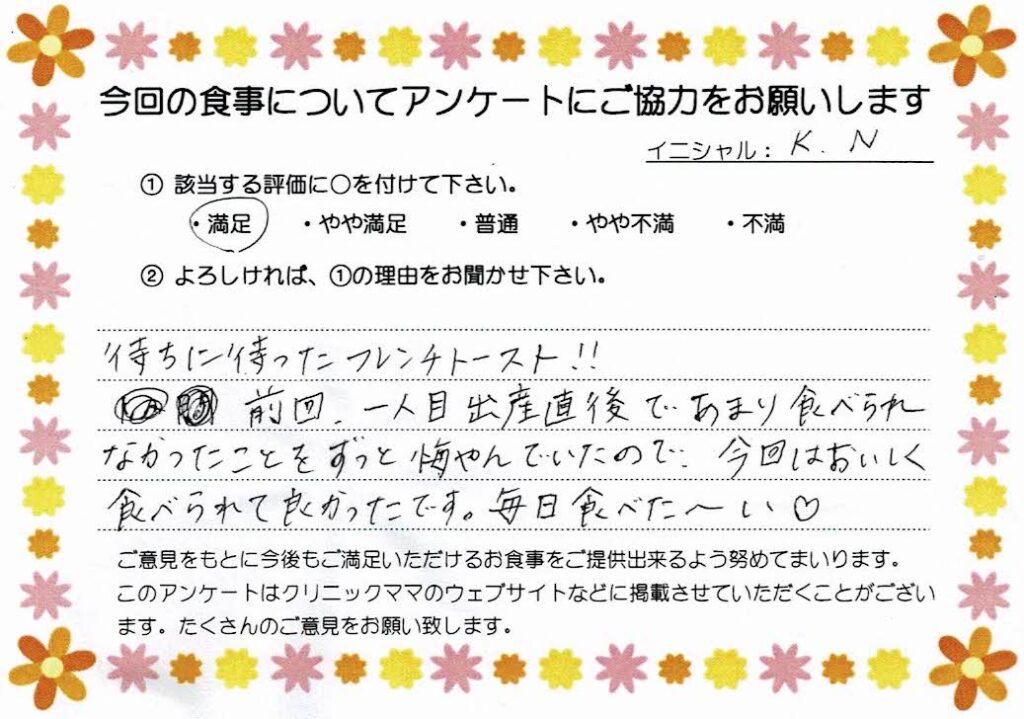 今回の食事についてアンケートにご協力をお願いします
イニシャル： K. N
① 該当する評価に○を付けて下さい。
・満足 ・やや満足 ・普通 ・やや不満 ・不満
② よろしければ、①の理由をお聞かせ下さい。
待ちに待ったフレンチトースト!!
前回、一人目出産直後であまり食べられ
なかったことをずっと悔やんでいたので、今回はおいしく
食べられて良かったです。毎日食べた〜い♡
ご意見をもとに今後もご満足いただけるお食事をご提供出来るよう努めてまいります。
このアンケートはクリニックママのウェブサイトなどに掲載させていただくことがござい
ます。たくさんのご意見をお願い致します。